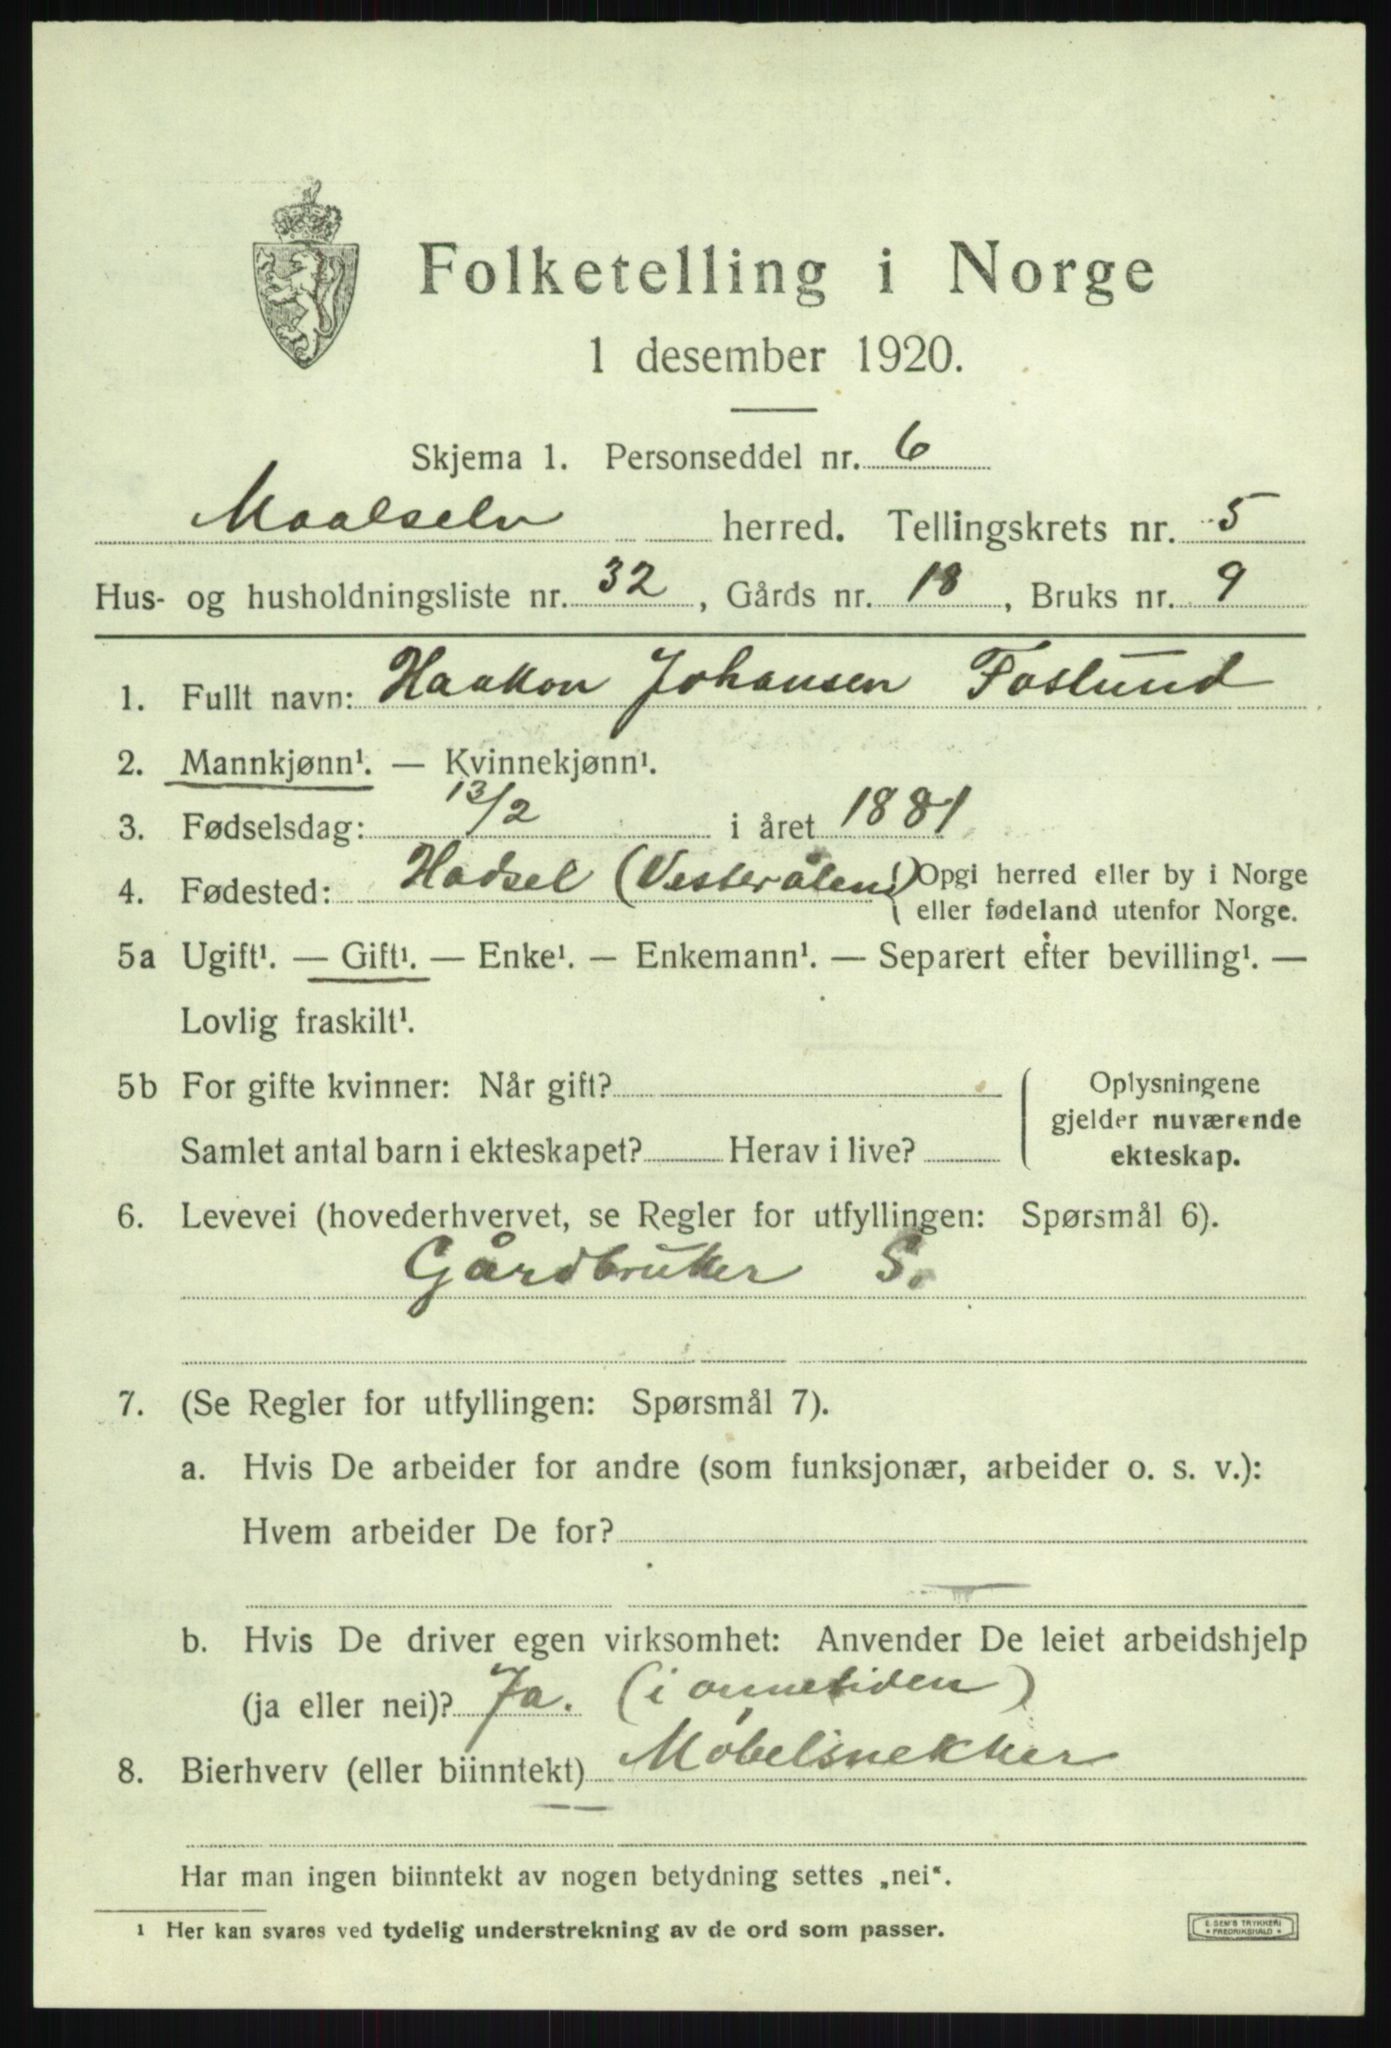 Folketelling i Norge
1 desember 1920.
Skjema 1. Personseddel nr. 6
Maalselv herred. Tellingskrets nr. 5
Hus- og husholdningsliste nr. 32, Gårds nr. 18, Bruks nr. 9
1. Fullt navn: Haakon Johansen Foslund
2. Mannkjønn¹. — Kvinnekjønn¹.
3. Fødselsdag: 13/2 i året 1881
4. Fødested: Hadsel (Vesterålen) Opgi herred eller by i Norge
eller fødeland utenfor Norge.
5a Ugift¹. — Gift¹. — Enke¹. — Enkemann¹. — Separert efter bevilling¹. —
Lovlig fraskilt¹.
5b For gifte kvinner: Når gift? Oplysningene
gjelder nuværende
Samlet antal barn i ekteskapet? Herav i live? ekteskap.
6. Levevei (hovederhvervet, se Regler for utfyllingen: Spørsmål 6).
Gårdbruker S.
7. (Se Regler for utfyllingen: Spørsmål 7).
a. Hvis De arbeider for andre (som funksjonær, arbeider o. s. v.):
Hvem arbeider De for?
b. Hvis De driver egen virksomhet: Anvender De leiet arbeidshjelp
(ja eller nei)? Ja. (i onnetiden)
8. Bierhverv (eller biinntekt) Møbelsnekker
Har man ingen biinntekt av nogen betydning settes „nei“.
¹ Her kan svares ved tydelig understrekning av de ord som passer.
E. SEM'S TRYKKERI
FREDRIKSHALD